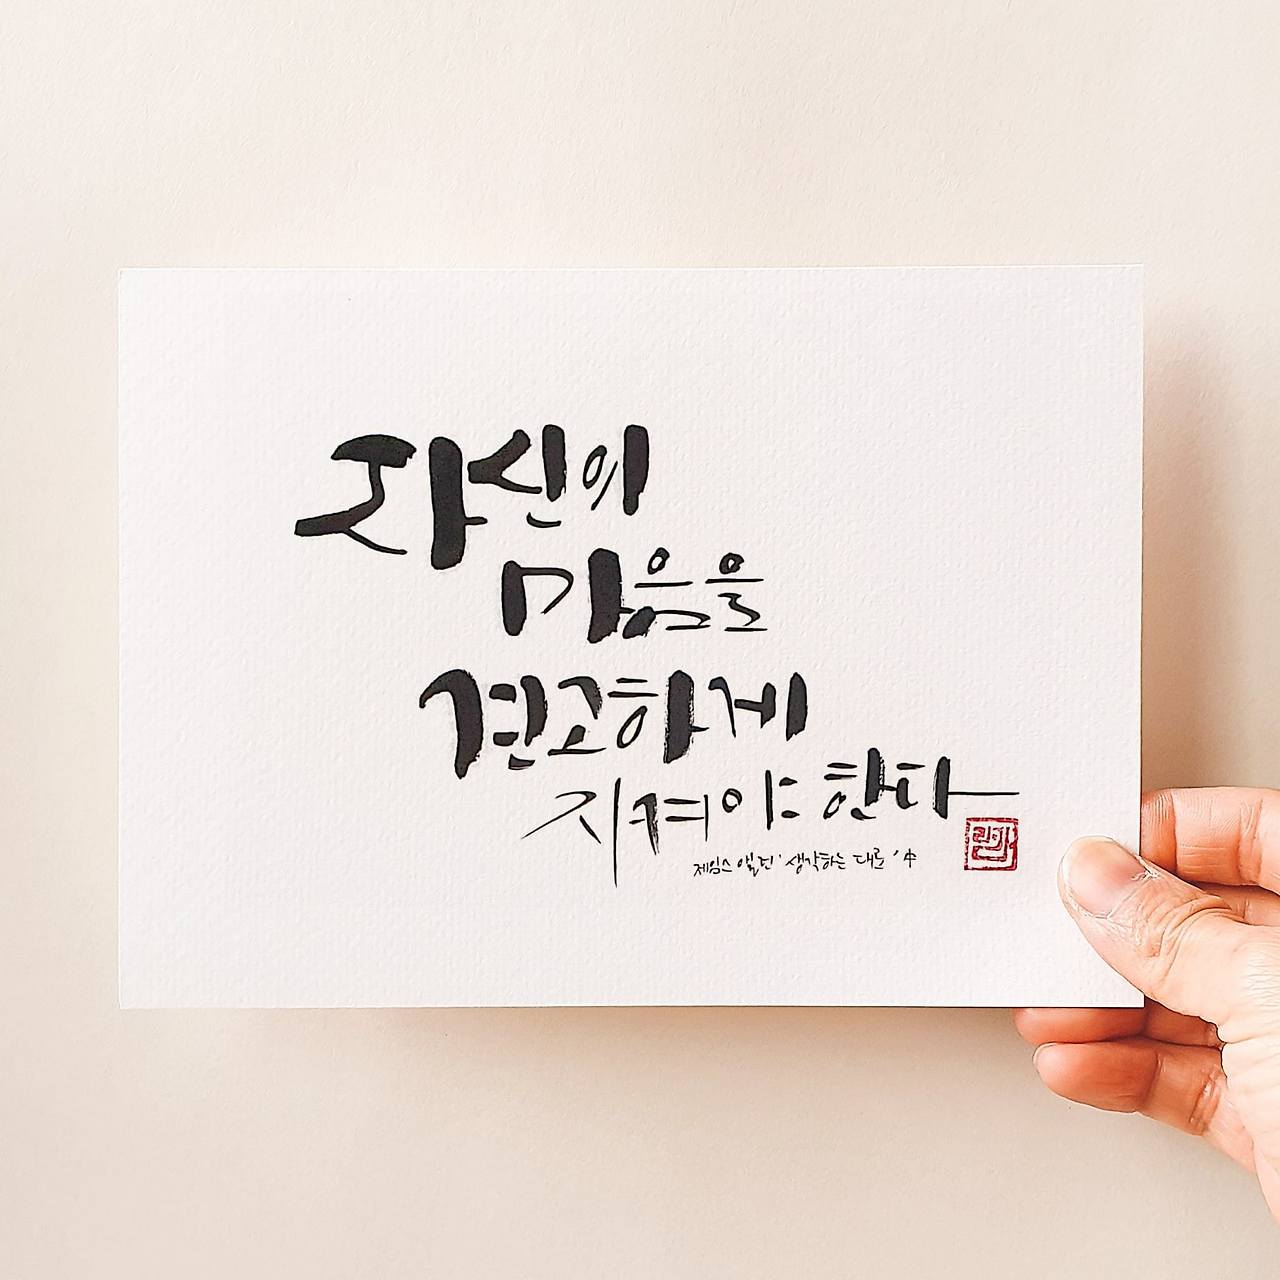 자신의
마음을
견고하게
지켜야 한다
제임스 앨런 '생각하는 대로' 中